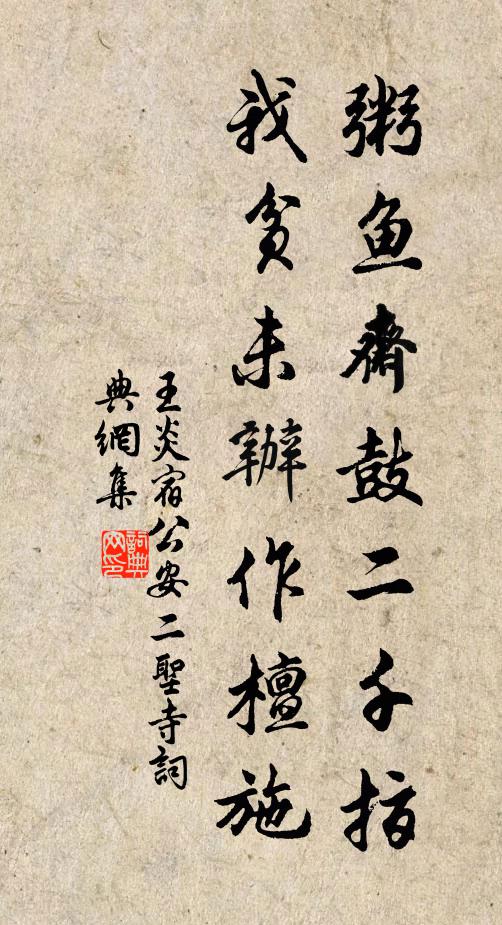 粥鱼斋鼓二千指
我贫未辦作檀施
王炎宿公安二聖寺詞
典網集
詞典网印